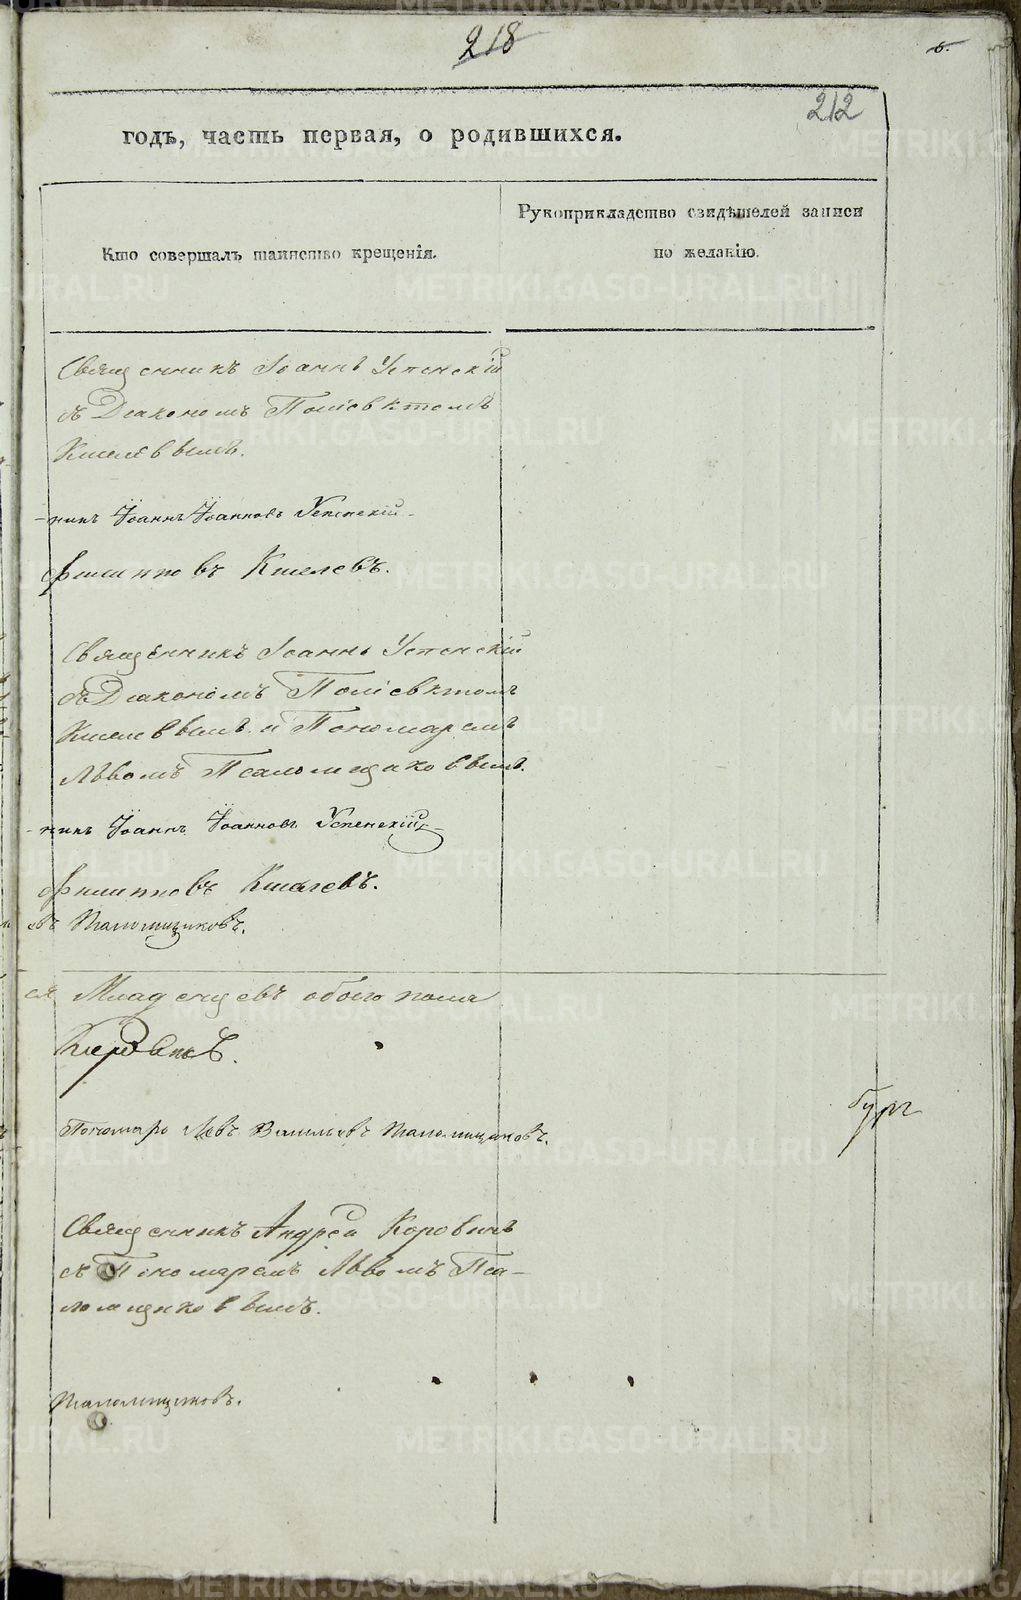 218
212
годъ, часть первая, о родившихся.
Кто совершалъ таинство крещенія.
Рукоприкладство свидѣтелей записи
по желанію.
Священникъ Іоаннъ Успенскій
съ Діакономъ Поліевктомъ
Киселевымъ.
-никъ Іоаннъ Іоанновъ Успенскій
Филиповъ Киселевъ.
Священникъ Іоаннъ Успенскій
съ Діакономъ Поліевктомъ
Киселевымъ и Пономаремъ
Львомъ Псаломщиковымъ.
-никъ Іоаннъ Іоанновъ Успенскій
Филиповъ Киселевъ.
евъ Псаломщиковъ.
ся Младенцевъ обоего пола
Коровинъ.
Пономарь Левъ Васильевъ Псаломщиковъ.
Священникъ Андрей Коровинъ
съ Пономаремъ Львомъ Пса-
ломщиковымъ.
Псаломщиковъ.
METRIKI.GASO-URAL.RU